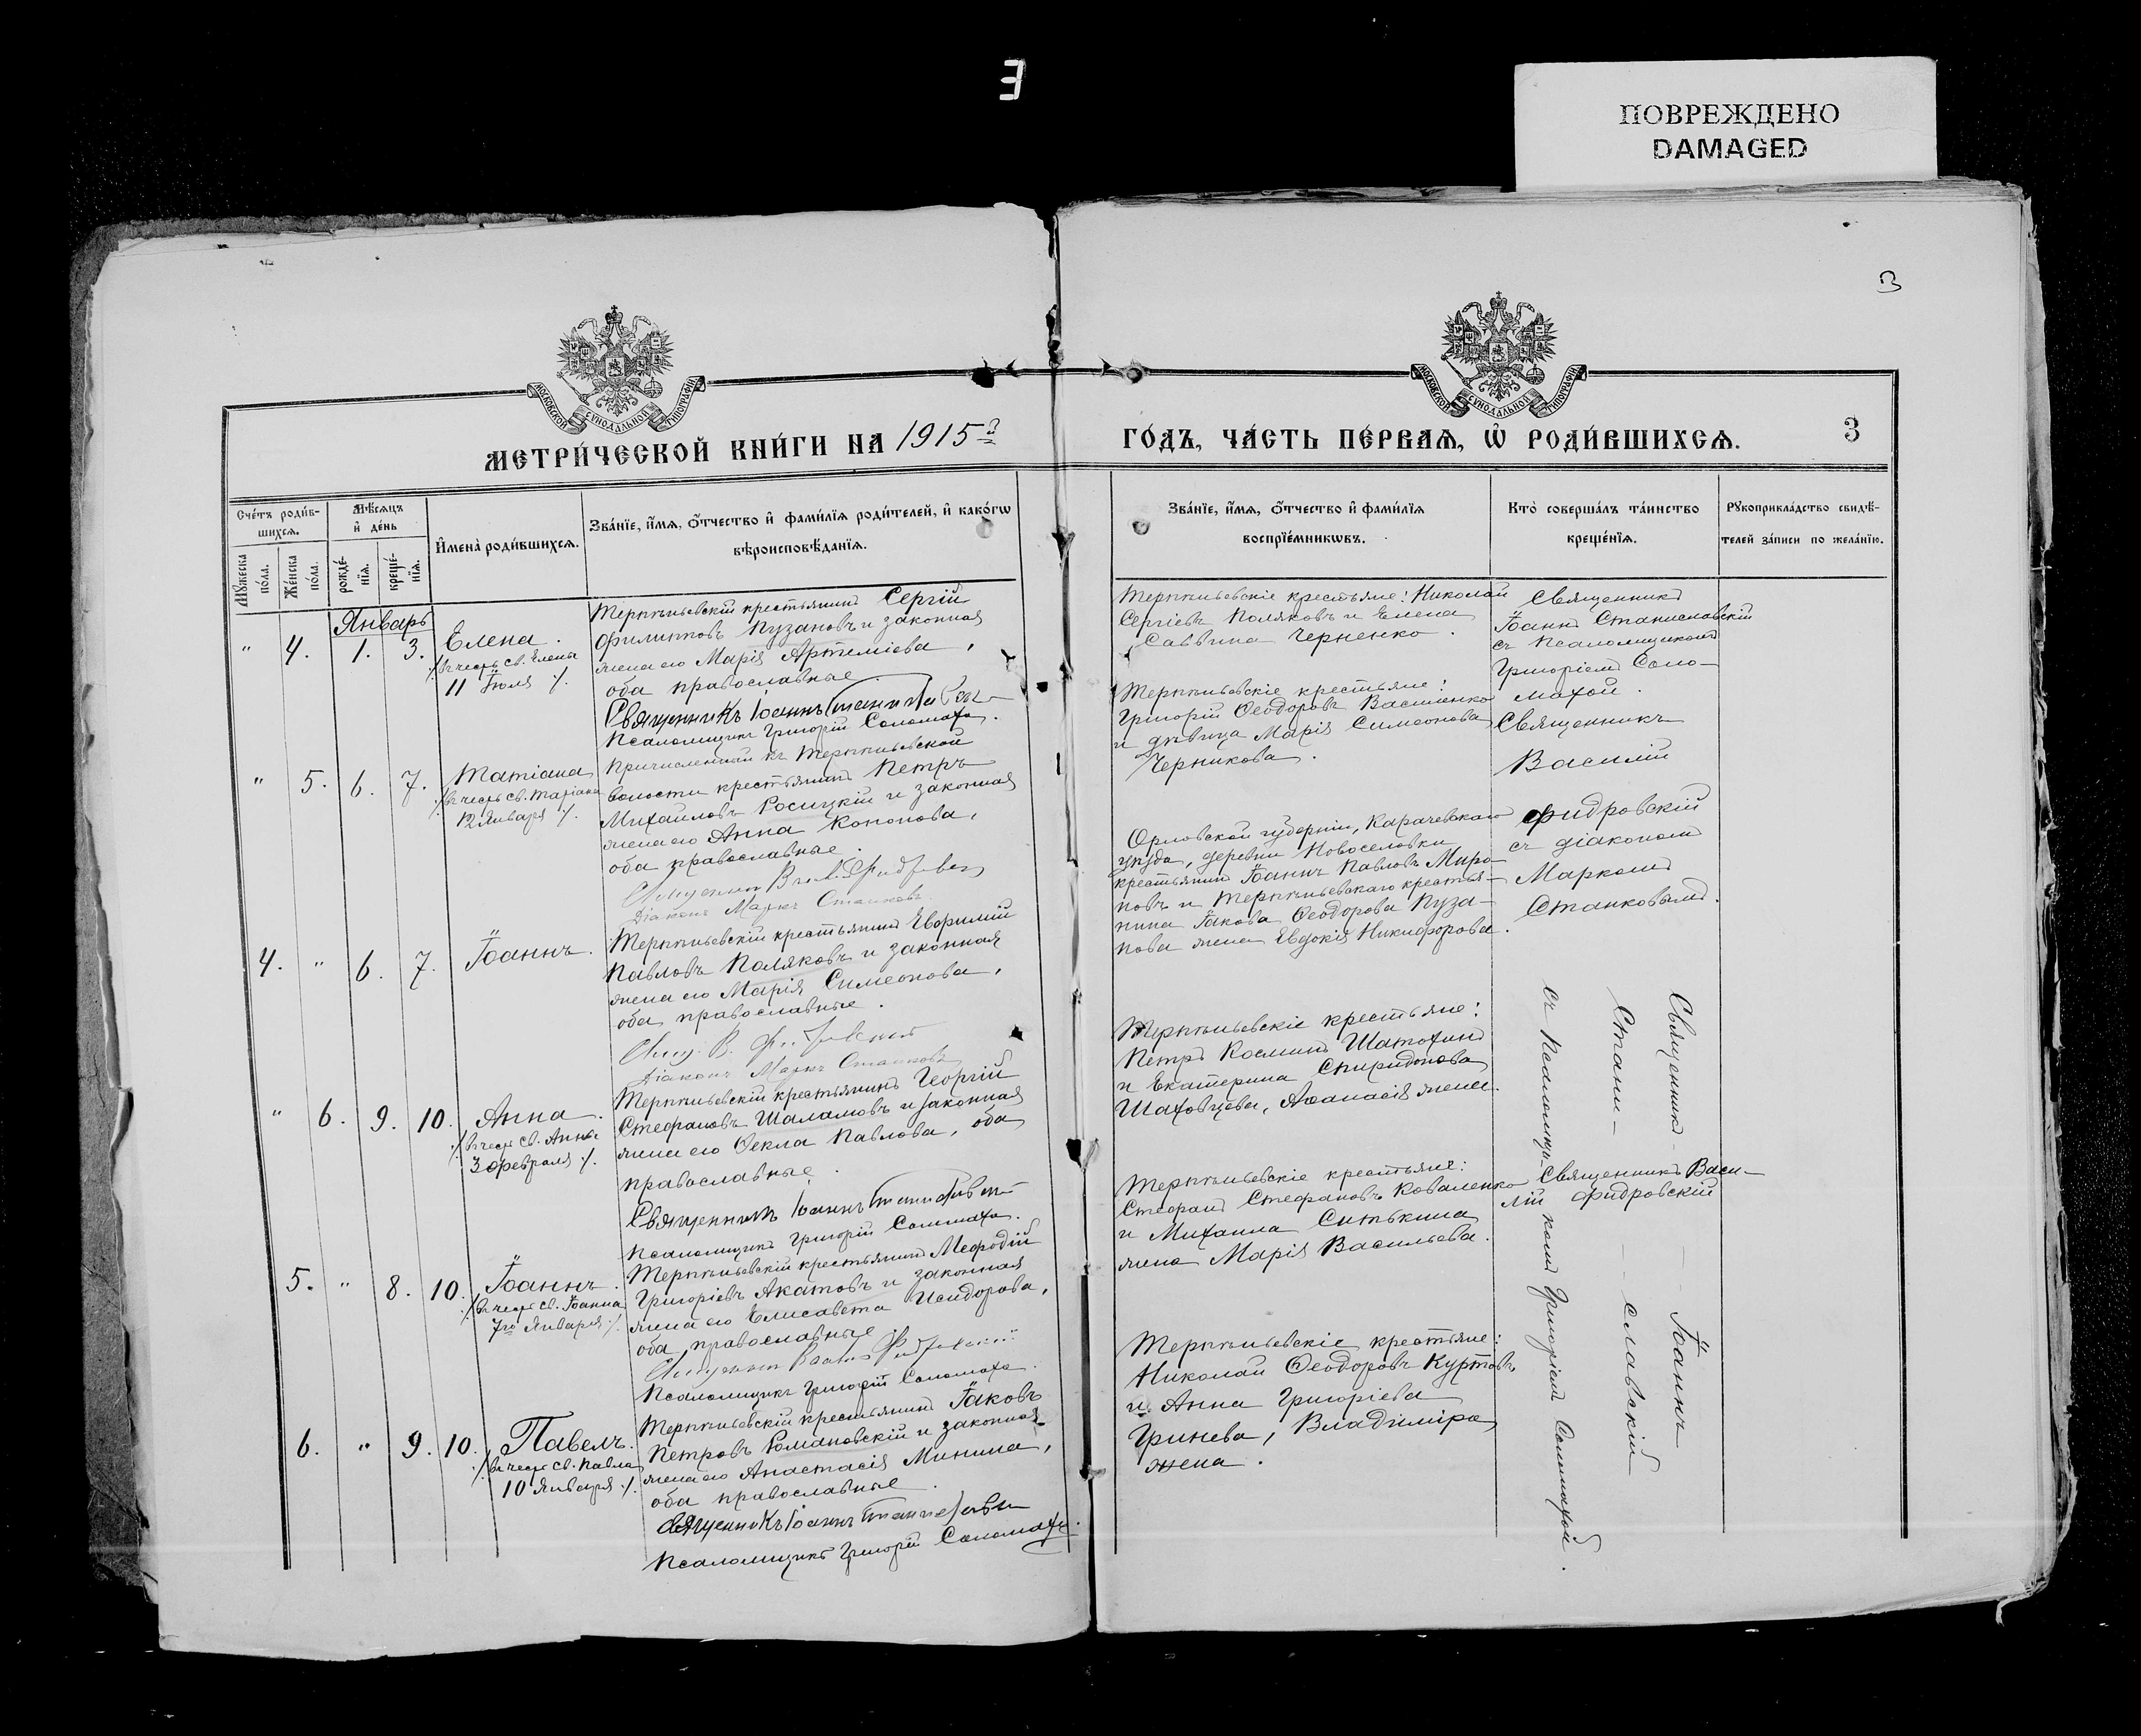 Е
ПОВРЕЖДЕНО
DAMAGED
3
МОСКОВСКОЙ СѴНОДАЛЬНОЙ ТИПОГРАФІИ
МОСКОВСКОЙ СѴНОДАЛЬНОЙ ТИПОГРАФІИ
МЕТРИ́ЧЕСКОЙ КНИ́ГИ НА 1915й
ГО́ДЪ, ЧА́СТЬ ПЕ́РВАѦ, Ѡ҆ РОДИ́ВШИХСѦ.
3
Сче́тъ роди́в-
шихсѧ.
Мꙋ́жеска
по́ла.
Же́нска
по́ла.
Мѣ́сѧцъ
и҆ де́нь
рожде́-
нїѧ.
креще́-
нїѧ.
И҆мена̀ роди́вшихсѧ.
Зва́нїе, и҆́мѧ, о҆́тчество и҆ фами́лїѧ роди́телей, и҆ како́гѡ
вѣроисповѣ́данїѧ.
Зва́нїе, и҆́мѧ, о҆́тчество и҆ фами́лїѧ
воспрїе́мникѡвъ.
Кто̀ соверша́лъ та́инство
креще́нїѧ.
Рꙋкоприкла́дство свидѣ́-
телей за́писи по жела́нїю.
Январь
" 4. 1. 3.
Елена.
/въ честь св. Елены
11 Іюля /.
крестьянинъ Сергій
Филипповъ Пузановъ и законная
жена его Марія Артеміева,
оба православные
Священникъ Іоаннъ
Псаломщикъ Григорій Соломаха.
крестьяне: Николай
Сергіевъ Поляковъ и Елена
Саввина Черненко.
Священникъ
Іоаннъ Станиславскій
съ Псаломщикомъ
Григоріемъ Соло-
махой.
" 5. 6. 7.
Татіана
/въ честь св. Татіаны
12 Января /.
Причисленный къ
волости крестьянинъ Петръ
Михайловъ Росицкій и законная
жена его Анна Кононова,
оба православные.
Діаконъ Маркъ Станковъ
крестьяне:
Григорій Ѳеодоровъ Васпенко
и дѣвица Марія Симеонова
Черникова.
Священникъ
Василій
Фидровскій
съ діакономъ
Маркомъ
Станковымъ.
4. " 6. 7.
Іоаннъ.
крестьянинъ Евфимій
Павловъ Поляковъ и законная
жена его Марія Симеонова,
оба православные.
Діаконъ Маркъ Станковъ
Орловской губерніи, Карачевскаго
уѣзда, деревни Новоселовки
крестьянинъ Іоаннъ Павловъ Миро-
новъ и крестья-
нина Іакова Ѳеодорова Пуза-
нова жена Евдокія Никифорова.
" 6. 9. 10.
Анна.
/въ честь св. Анны
3 Февраля /.
крестьянинъ Георгій
Стефановъ Шаламовъ и законная
жена его Ѳекла Павлова, оба
православные.
Священникъ Іоаннъ
Псаломщикъ Григорій Соломаха.
крестьяне:
Петръ Косминъ Шатохинъ
и Екатерина Спиридонова
Шаховцева, Аѳанасія жена.
Священникъ Іоаннъ
Стани- славскій
съ Псаломщи- комъ Григоріемъ Соломахой.
5. " 8. 10.
Іоаннъ.
/въ честь св. Іоанна
7го Января /.
крестьянинъ Меѳодій
Григоріевъ Акатовъ и законная
жена его Елисавета Исидорова,
оба православные.
Псаломщикъ Григорій Соломаха.
крестьяне:
Стефанъ Стефановъ Коваленко
и Михаила Ситькина
жена Марія Васильева.
Священникъ Васи-
лій Фидровскій
6. " 9. 10.
Павелъ.
/въ честь св. Павла
10 Января /.
крестьянинъ Іаковъ
Петровъ Романовскій и законная
жена его Анастасія Минина,
оба православные.
Священникъ Іоаннъ
Псаломщикъ Григорій Соломаха.
крестьяне:
Николай Ѳеодоровъ Куртовъ
и Анна Григоріева
Гринева, Владиміра
жена.